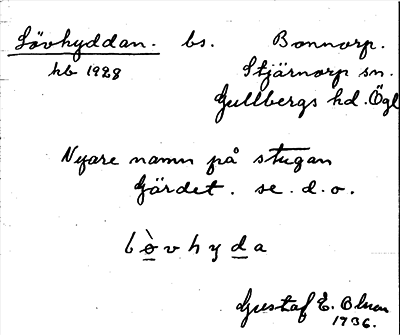 Lövhyddan. bs. Bonnorp.
hb 1928 Stjärnorp sn.
Gullbergs hd. Ögl
Nyare namn på stugan
Gärdet. se. d. o.
l ò v h y d a
Gustaf E. Blom
1936.